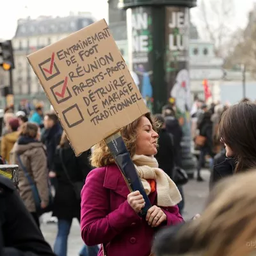 ENTRAINEMENT
DE FOOT
RÉUNION
PARENTS-PROFS
DÉTRUIRE
LE MARIAGE
TRADITIONNEL